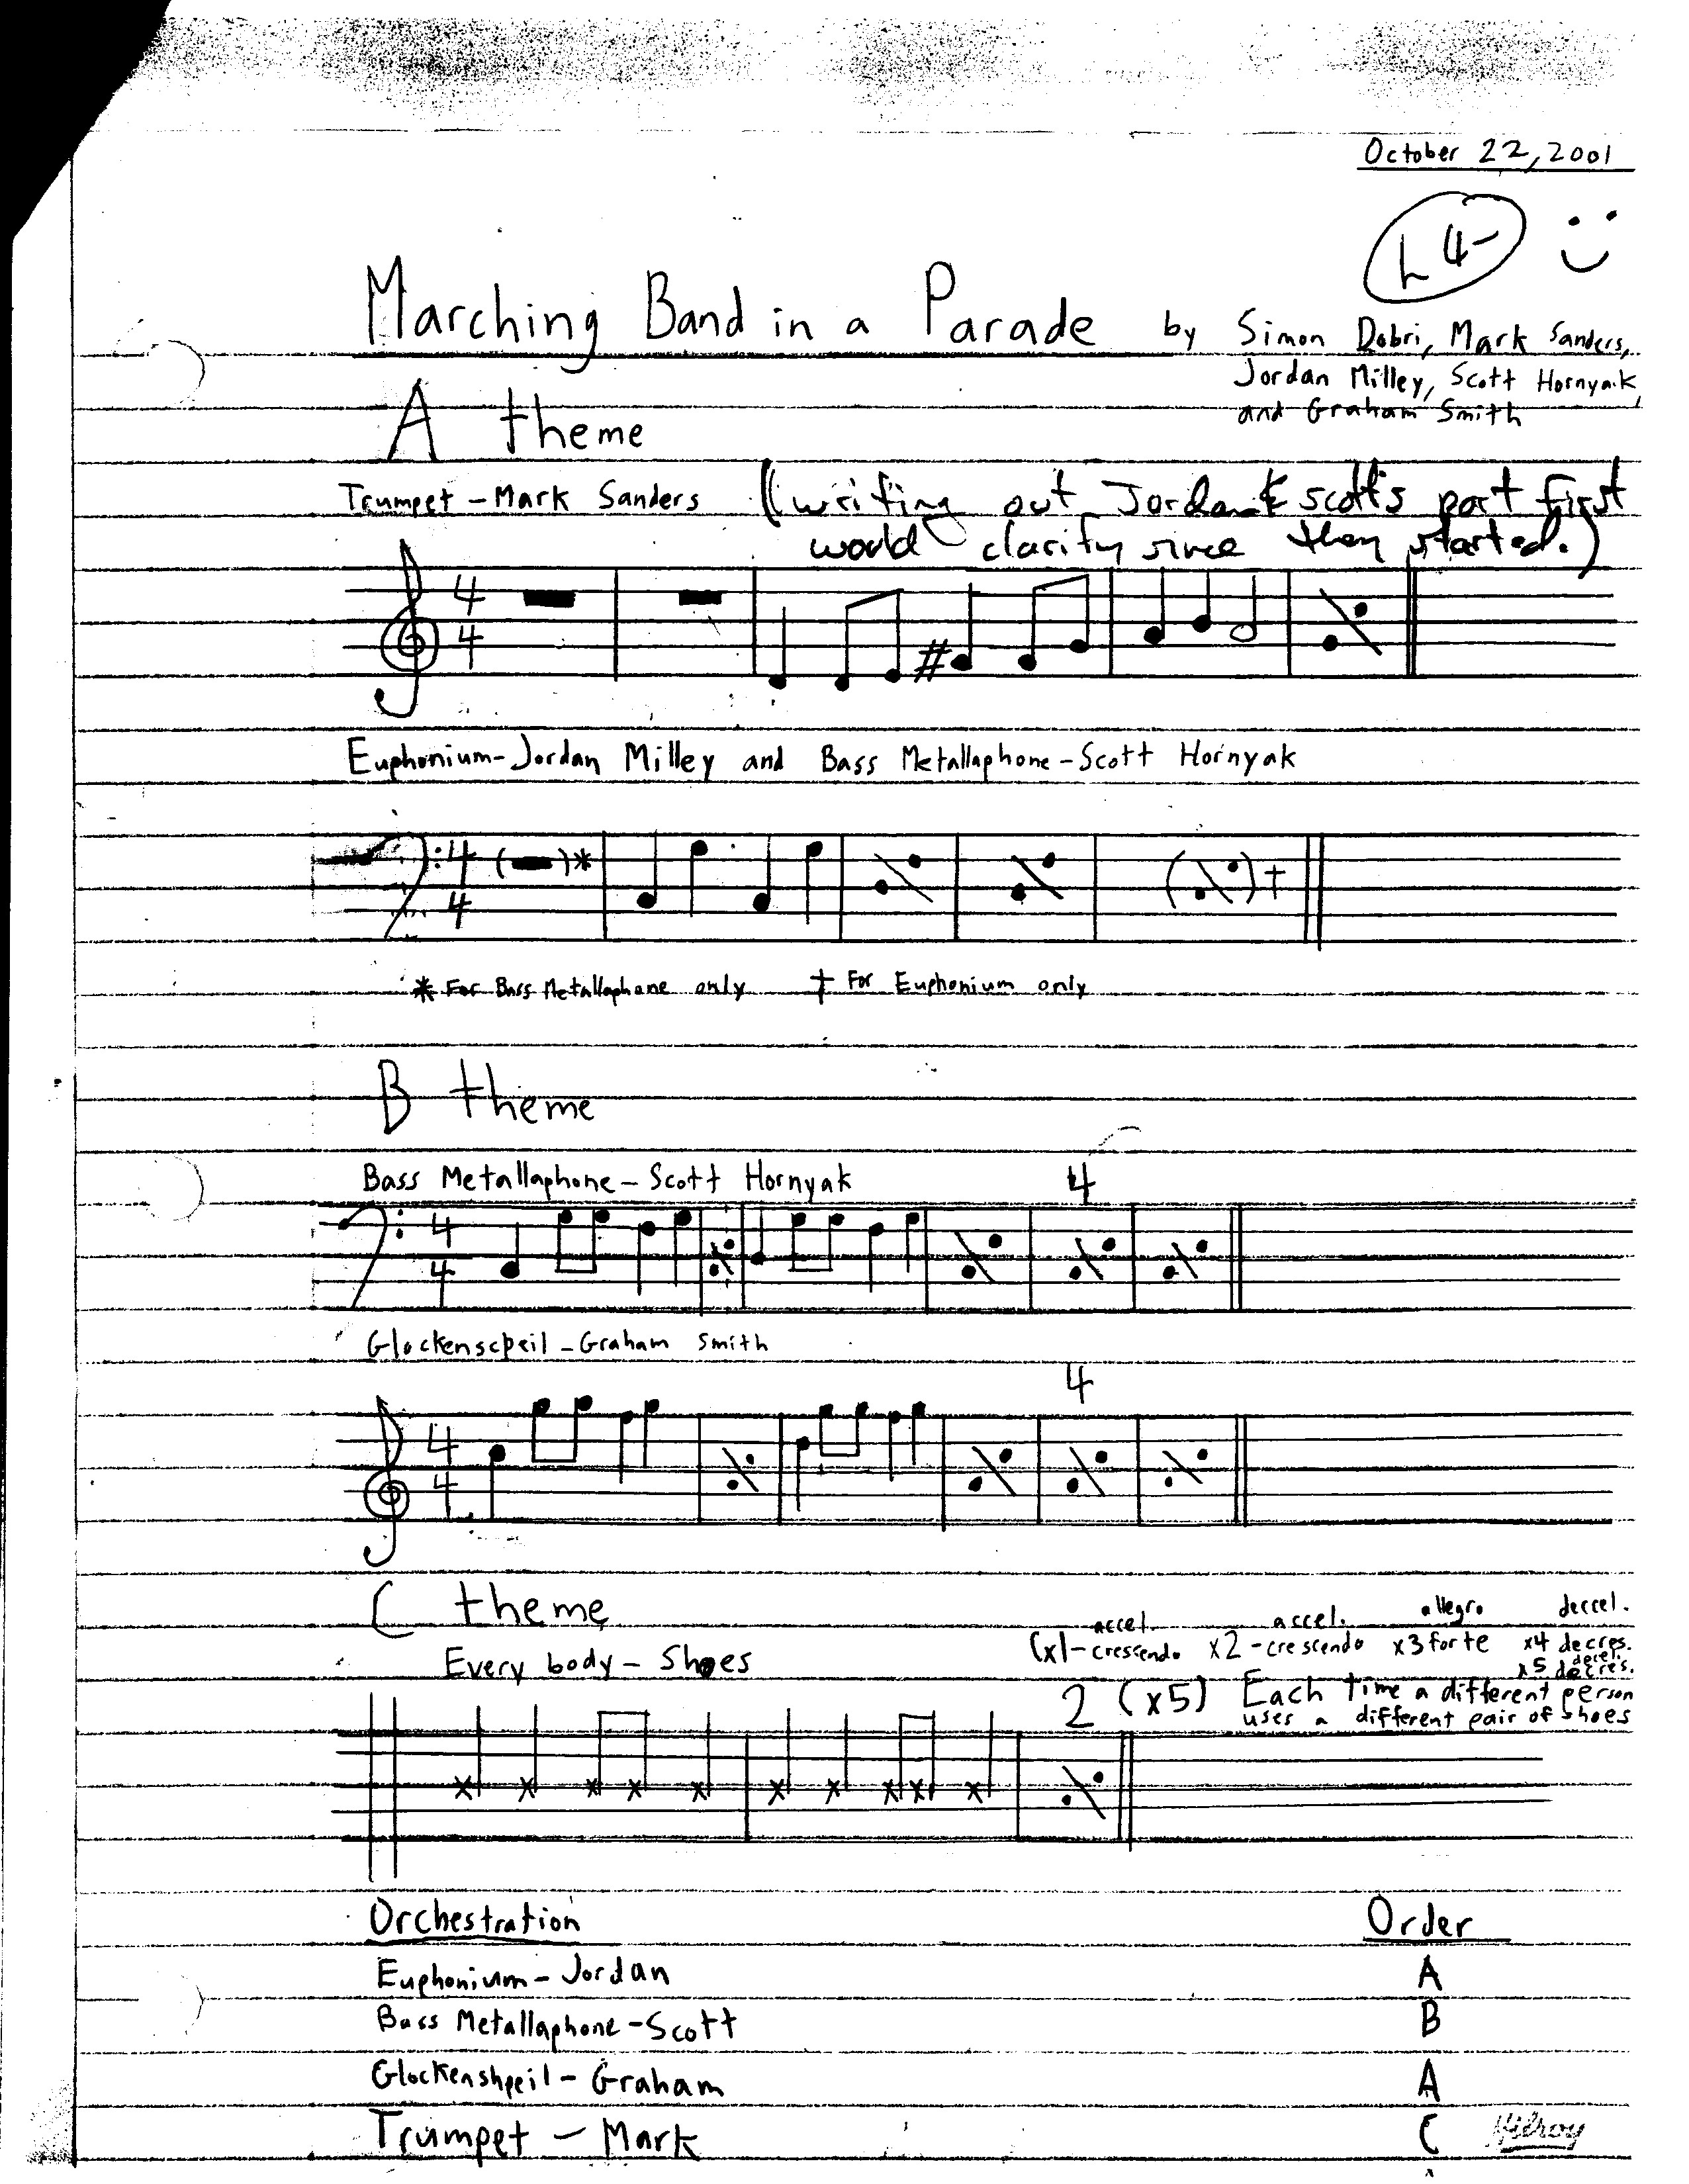 October 22, 2001
L4-
Marching Band in a Parade by Simon Dobri, Mark Sanders,
Jordan Milley, Scott Hornyak,
and Graham Smith
A theme
Trumpet - Mark Sanders (writing out Jordan & Scott's part first
would clarify since they started.)
4
4
Euphonium - Jordan Milley and Bass Metallaphone - Scott Hornyak
4 ( )*
4 ( )†
* For Bass Metallaphone only † For Euphonium only
B theme
Bass Metallaphone - Scott Hornyak 4
4
4
Glockenscpeil - Graham Smith
4
4
4
C theme
accel. accel. allegro deccel.
Every body - Shoes (x1-crescendo x2-crescendo x3 forte x4 decres.
decel.
x5 decres.
2 (x5) Each time a different person
uses a different pair of shoes
Orchestration Order
Euphonium - Jordan A
Bass Metallaphone - Scott B
Glockenshpeil - Graham A
Trumpet - Mark C Hilroy